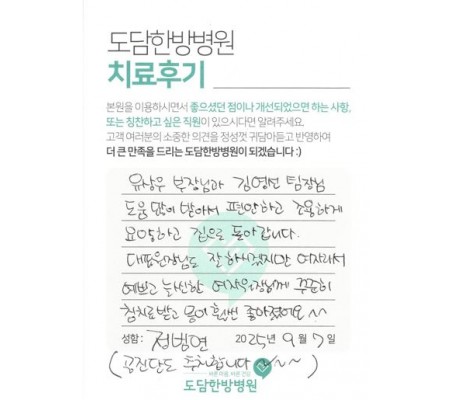 도담한방병원
치료후기
본원을 이용하시면서 좋으셨던 점이나 개선되었으면 하는 사항,
또는 칭찬하고 싶은 직원이 있으시다면 알려주세요.
고객 여러분의 소중한 의견을 정성껏 귀담아듣고 반영하여
더 큰 만족을 드리는 도담한방병원이 되겠습니다 :)
유상우 부장님과 김영선 팀장님
도움 많이 받아서 편안하고 조용하게
요양하고 집으로 돌아갑니다.
대표원장님도 잘 하시겠지만 여자라서
예쁘고 늘씬한 여자원장님께 꾸준히
침치료받고 몸이 훨씬 좋아졌어요~~
성함: 정범연 2025년 9월 7일
(공진단도 추천합니다 ~~)
바른 마음, 바른 건강
도담한방병원